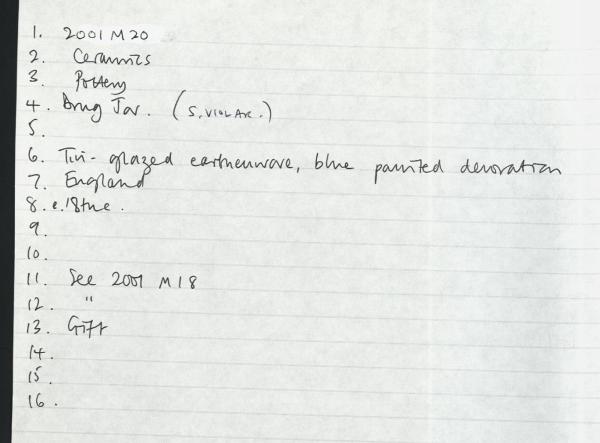 1. 2001 M 20
2. Ceramics
3. Pottery
4. Drug Jar. (S. VIOLAR.)
5.
6. Tin-glazed earthenware, blue painted decoration
7. England
8. e. 18thc.
9.
10.
11. See 2001 M 18
12. "
13. Gift
14.
15.
16.